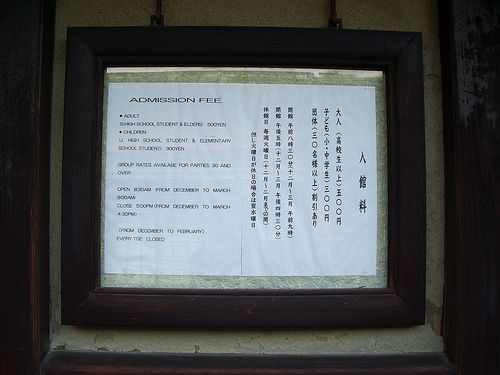 ADMISSION FEE
● ADULT
(S.HIGH SCHOOL STUDENT & ELDERS) 500YEN
● CHILDREN
(J. HIGH SCHOOL STUDENT & ELEMENTARY
SCHOOL STUDENT) 300YEN
GROUP RATES AVAILABE FOR PARTIES 30 AND
OVER
OPEN 8:30AM (FROM DECEMBER TO MARCH
9:00AM)
CLOSE 5:00PM (FROM DECEMBER TO MARCH
4:30PM)
(FROM DECEMBER TO FEBRUARY)
EVERY TUE CLOSED
入館料
大人(高校生以上)五〇〇円
子ども(小・中学生)三〇〇円
団体(三〇名様以上)割引あり
開館 午前八時三〇分(十二月~三月 午前九時)
閉館 午後五時(十二月~三月 午後四時三〇分)
休館日 毎週火曜日(十二月~二月の間)
但し火曜日が休日の場合は翌水曜日